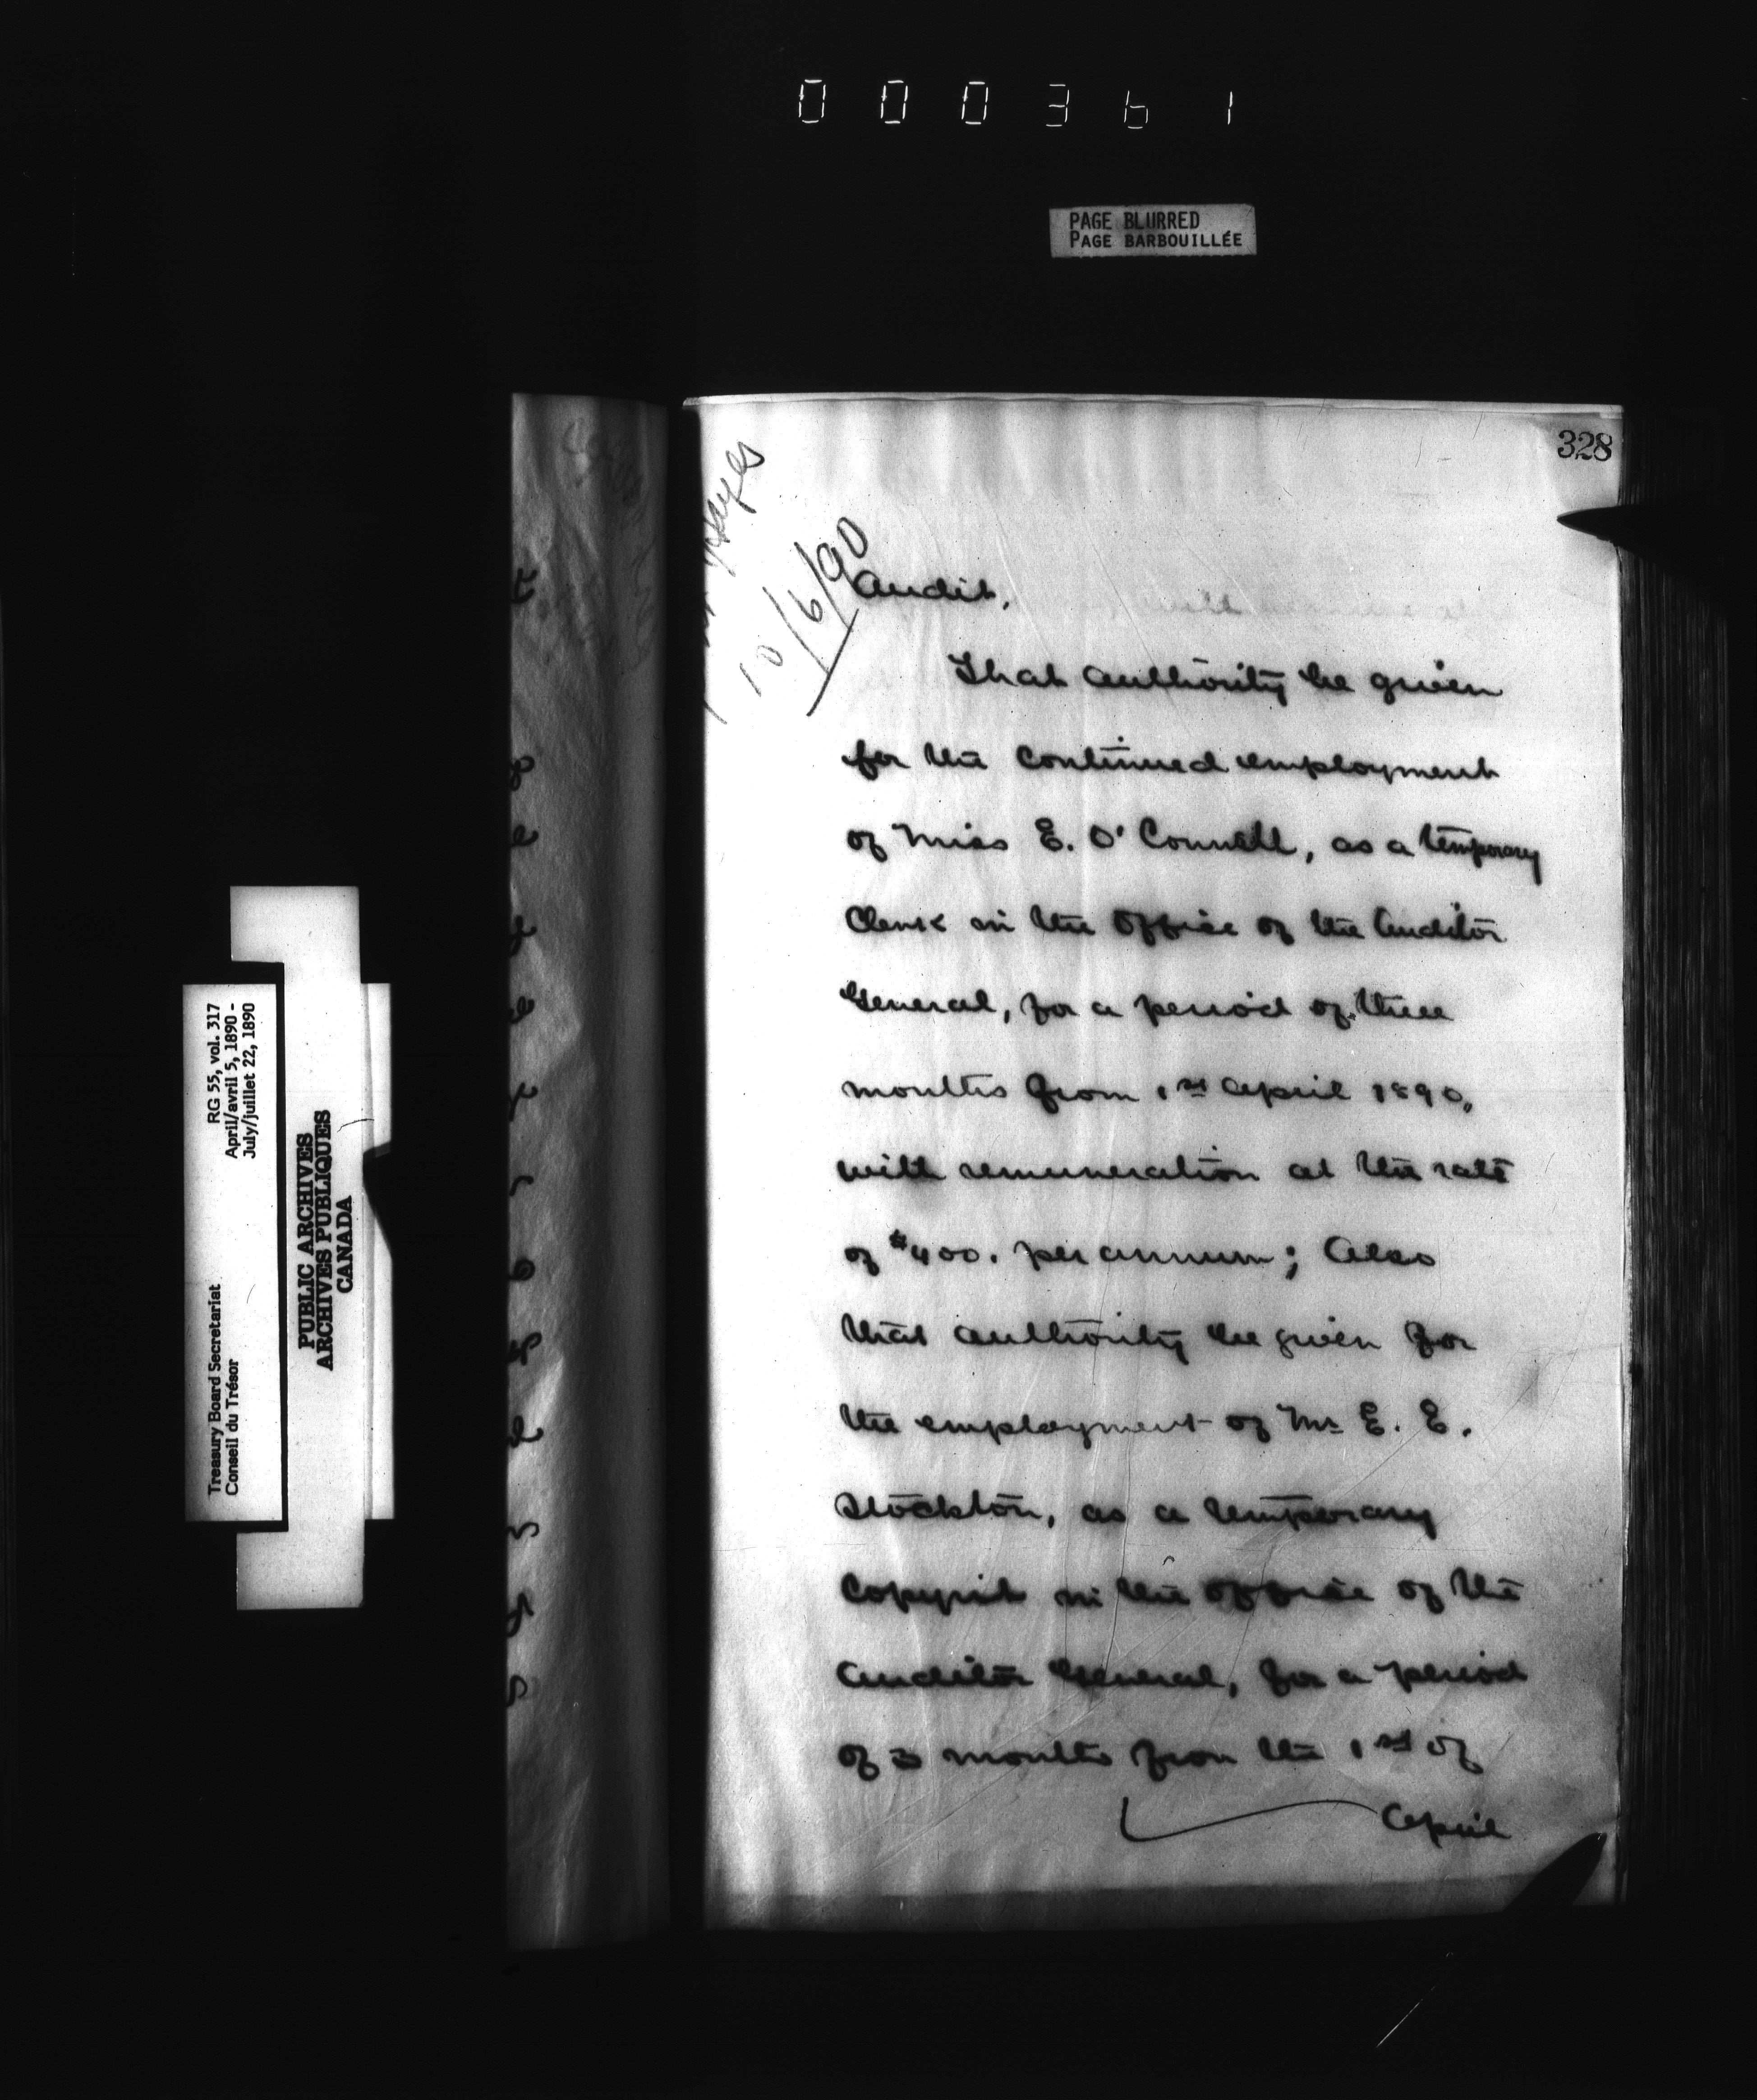 000361
PAGE BLURRED
PAGE BARBOUILLÉE
328
10/6/90
Audit,
That authority be given
for the continued employment
of Miss E. O'Connell, as a temporary
Clerk in the Office of the Auditor
General, for a period of three
months from 1st April 1890,
with remuneration at the rate
of $400. per annum; Also
that authority be given for
the employment of Mr E. E.
Stockton, as a temporary
Copyist in the office of the
Auditor General, for a period
of 3 months from the 1st of
April
Treasury Board Secretariat RG 55, vol. 317
Conseil du Trésor April/avril 5, 1890 -
July/juillet 22, 1890
PUBLIC ARCHIVES
ARCHIVES PUBLIQUES
CANADA